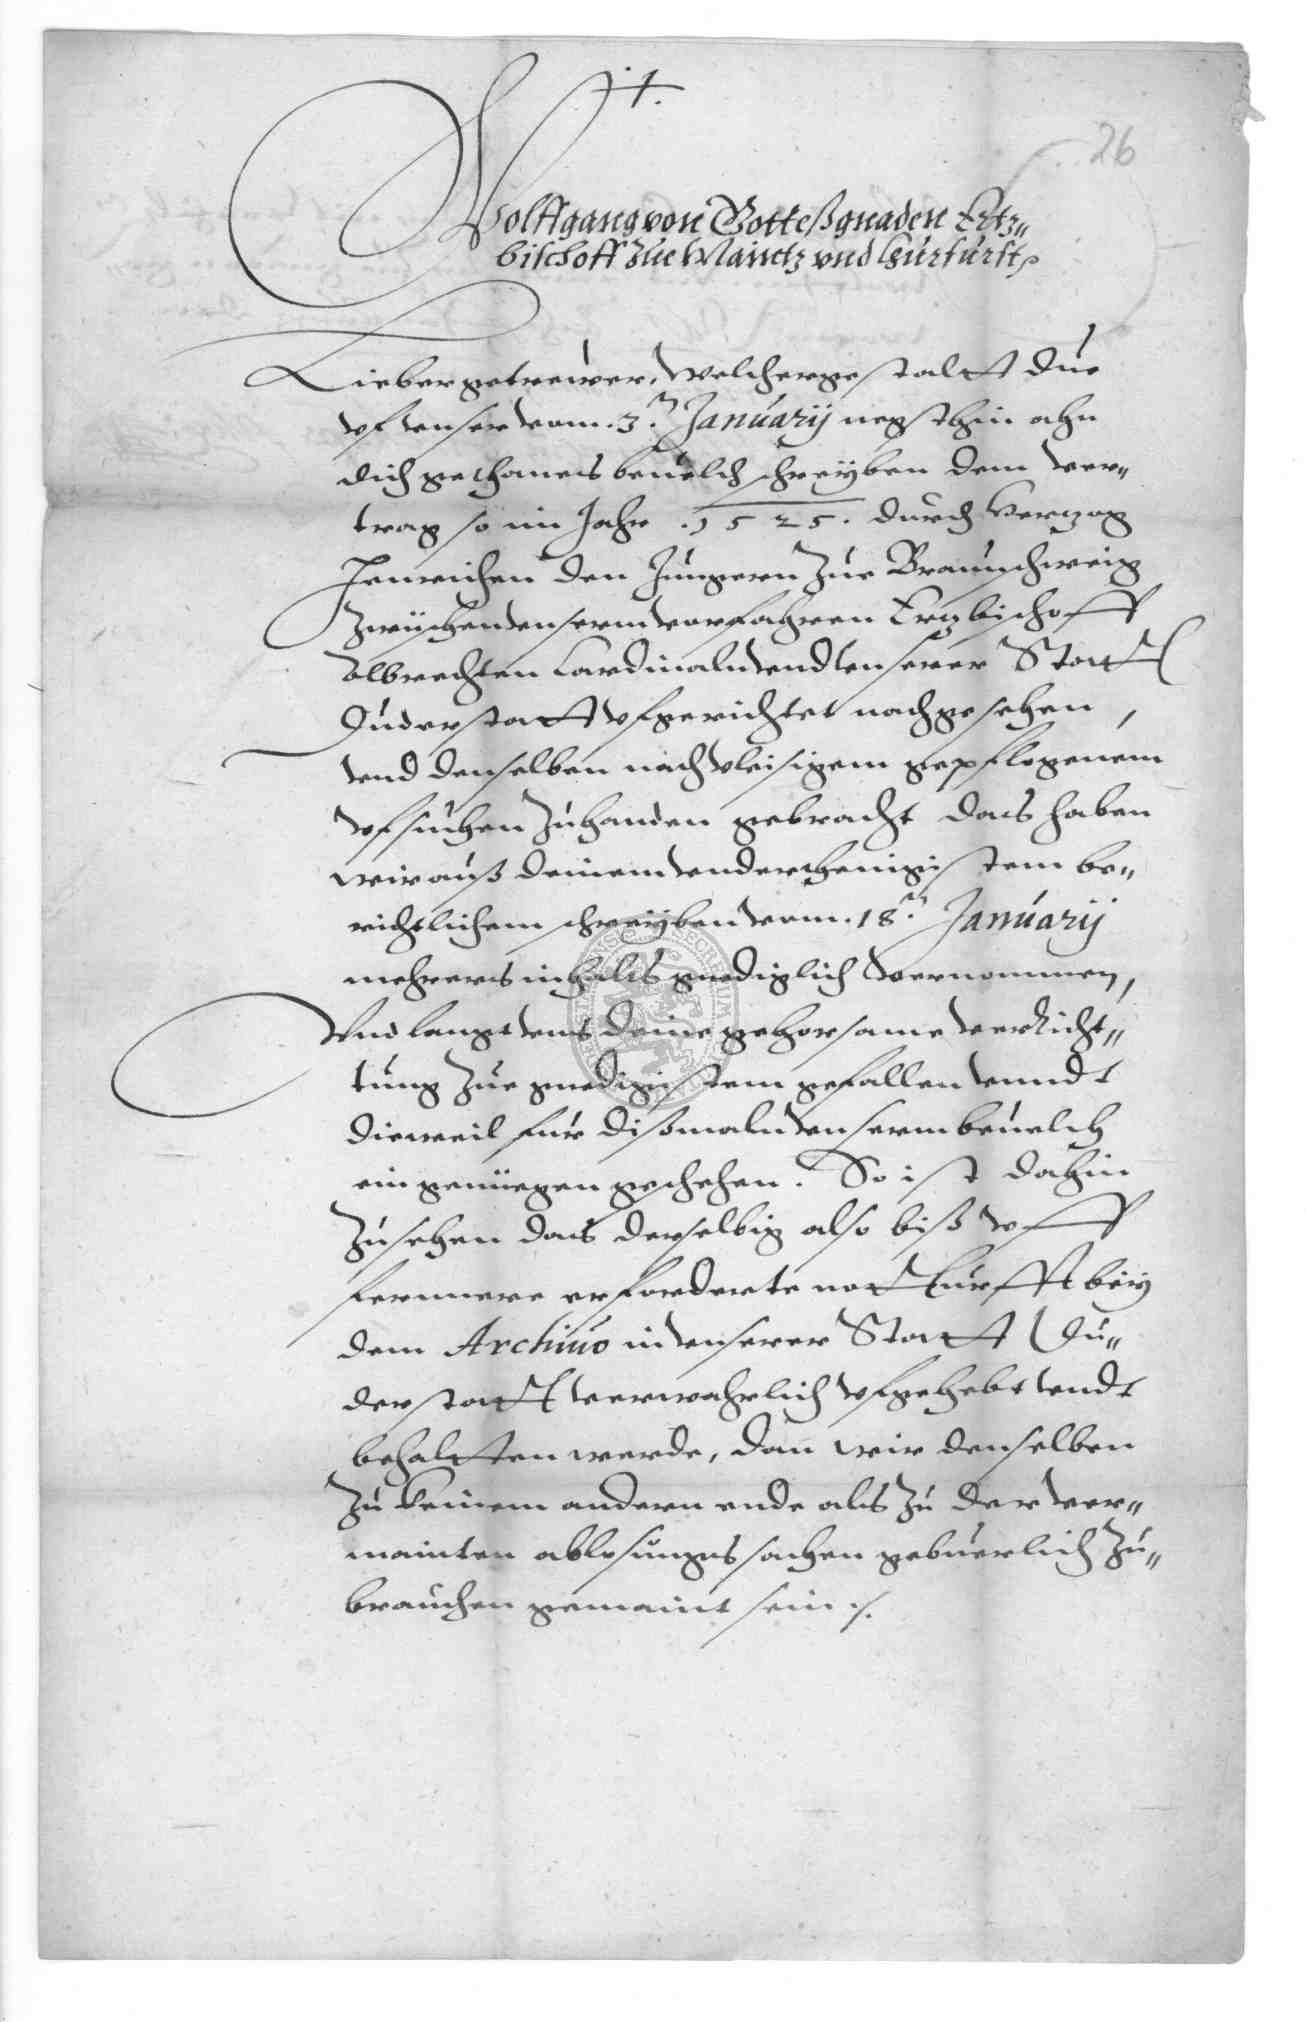 26
Wolffgang von Gotteßgnaden Ertz„
bischoff Zue Maintz vnd Churfürst
Lieber getrewer, Welchergestaltt due
vf vnser vom .3.ⁿ Januarij negsthin ahn
dich gethanes beuelch schreyben dem Ver„
trag so im Jahr .1525. durch Hertzog
Henrichen den Jungern Zue Braunschweig
Zwischen vnserm vorfahren Ertzbischoff
Albrechten Cardinaln vnd vnserer Statt
Duderstatt vfgerichtet nachgesehen,
vnd denselben nach vleisigem gepflogenem
vfsuchen Zuhanden gebracht das haben
wir auß deinem vnderthenigistem be„
richtlichem schreyben vom .18.ⁿ Januarij
mehrers inhalts gnediglich Vernommen,
Vnd langt vns deine gehorsame verricht„
tung Zue gnedigistem gefallen vnndt
dieweil für dißmaln vnserm beuelch
ein genüegen geschehen. So ist dahin
Zusehen das derselbig also biß vff
fernnere erforderte notturfft bey
dem Archiuo in vnserer Statt Du„
derstatt verwahrlich vfgehebt vndt
behaltten werde, dan wir denselben
Zu keinem andern ende als Zu der ver„
mainten ablosungs sachen gebuerlich Zu„
brauchen gemaint sein